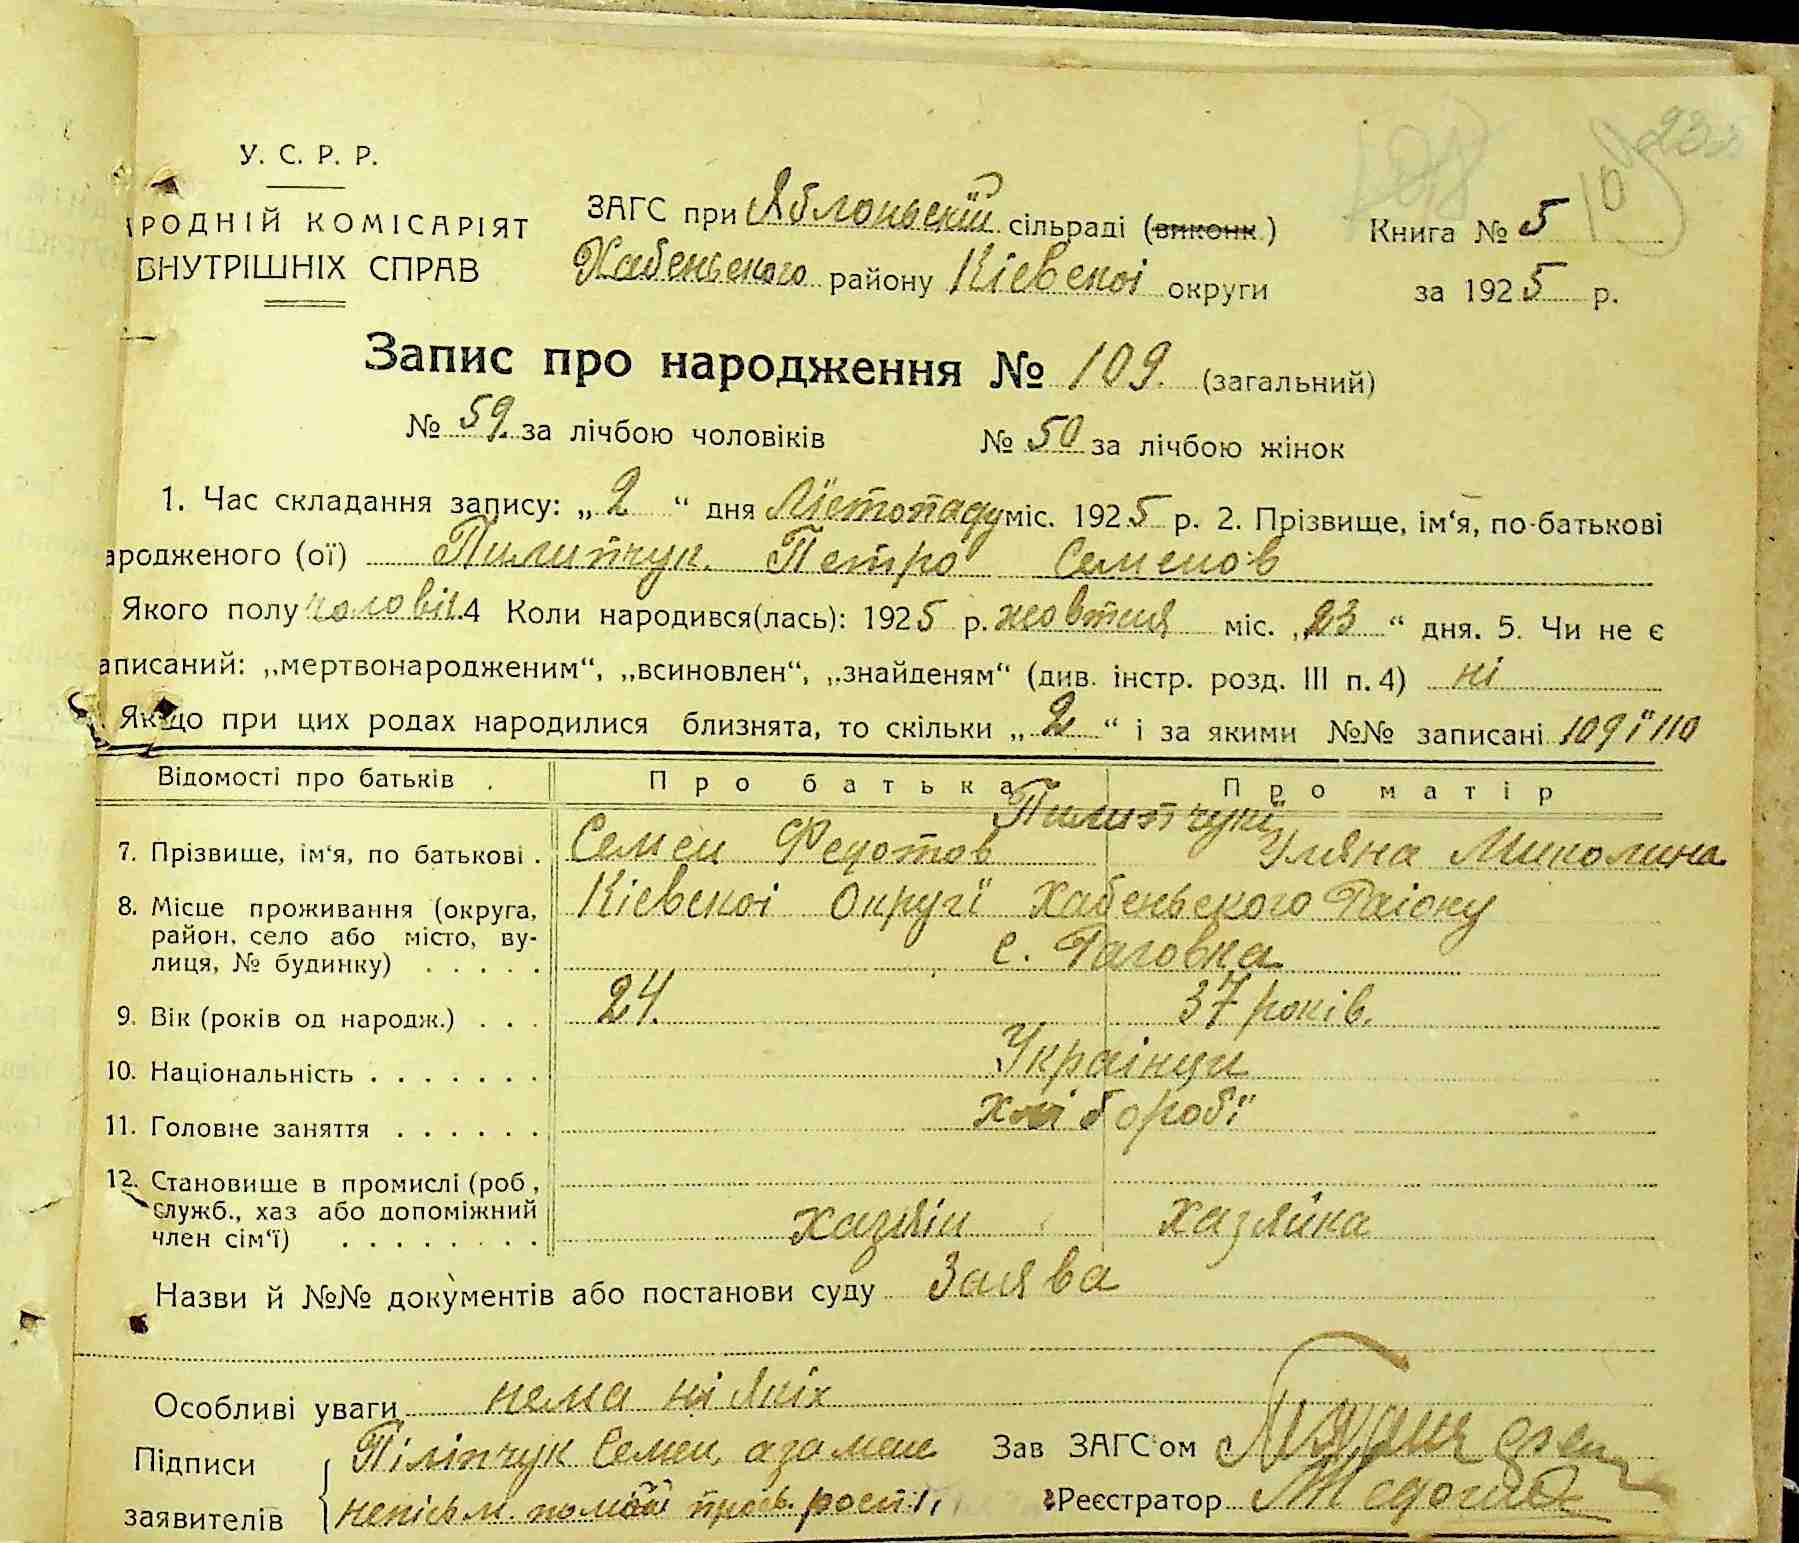 У. С. Р. Р.
РОДНІЙ КОМІСАРІЯТ
ВНУТРІШНІХ СПРАВ
ЗАГС при Яблоньскій сільраді (виконк.)
Хабеньского району Кіевскоі округи
Книга № 5
за 1925 р.
109
Запис про народження № 109. (загальний)
№ 59. за лічбою чоловіків № 50 за лічбою жінок
1. Час складання запису: „ 2 “ дня Лїстопаду міс. 1925 р. 2. Прізвище, ім‘я, по-батькові
ародженого (ої) Пилипчук. Петро Семенов
Якого полу чоловіч. 4 Коли народився(лась): 1925 р. жовтня міс. „23“ дня. 5. Чи не є
аписаний: „мертвонародженим“, „всиновлен“, „знайденям“ (див. інстр. розд. III п. 4) ні
Якщо при цих родах народилися близнята, то скільки „ 2 “ і за якими №№ записані 109 ї 110
Відомості про батьків Про батька Про матір
Пилипчукї
7. Прізвище, ім‘я, по батькові . Семен Федотов Уляна Миколина
8. Місце проживання (округа, район, село або місто, вулиця, № будинку) Кіевскоі Округї Хабеньского Раіону
с. Раговка
9. Вік (років од народж.) . . . 24. 37 років.
10. Національність . . . . . . . Украінци
11. Головне заняття . . . . . . хліборобї
12. Становище в промислі (роб.,
служб., хаз або допоміжний
член сім‘ї) . . . . . . . . хазяін хазяйка
Назви й №№ документів або постанови суду Заява
Особливі уваги нема ніякіх
Підписи Піліпчук Семен, а за мене
заявителів непісьм. прозь. росп.
Зав ЗАГС‘ом
Реєстратор